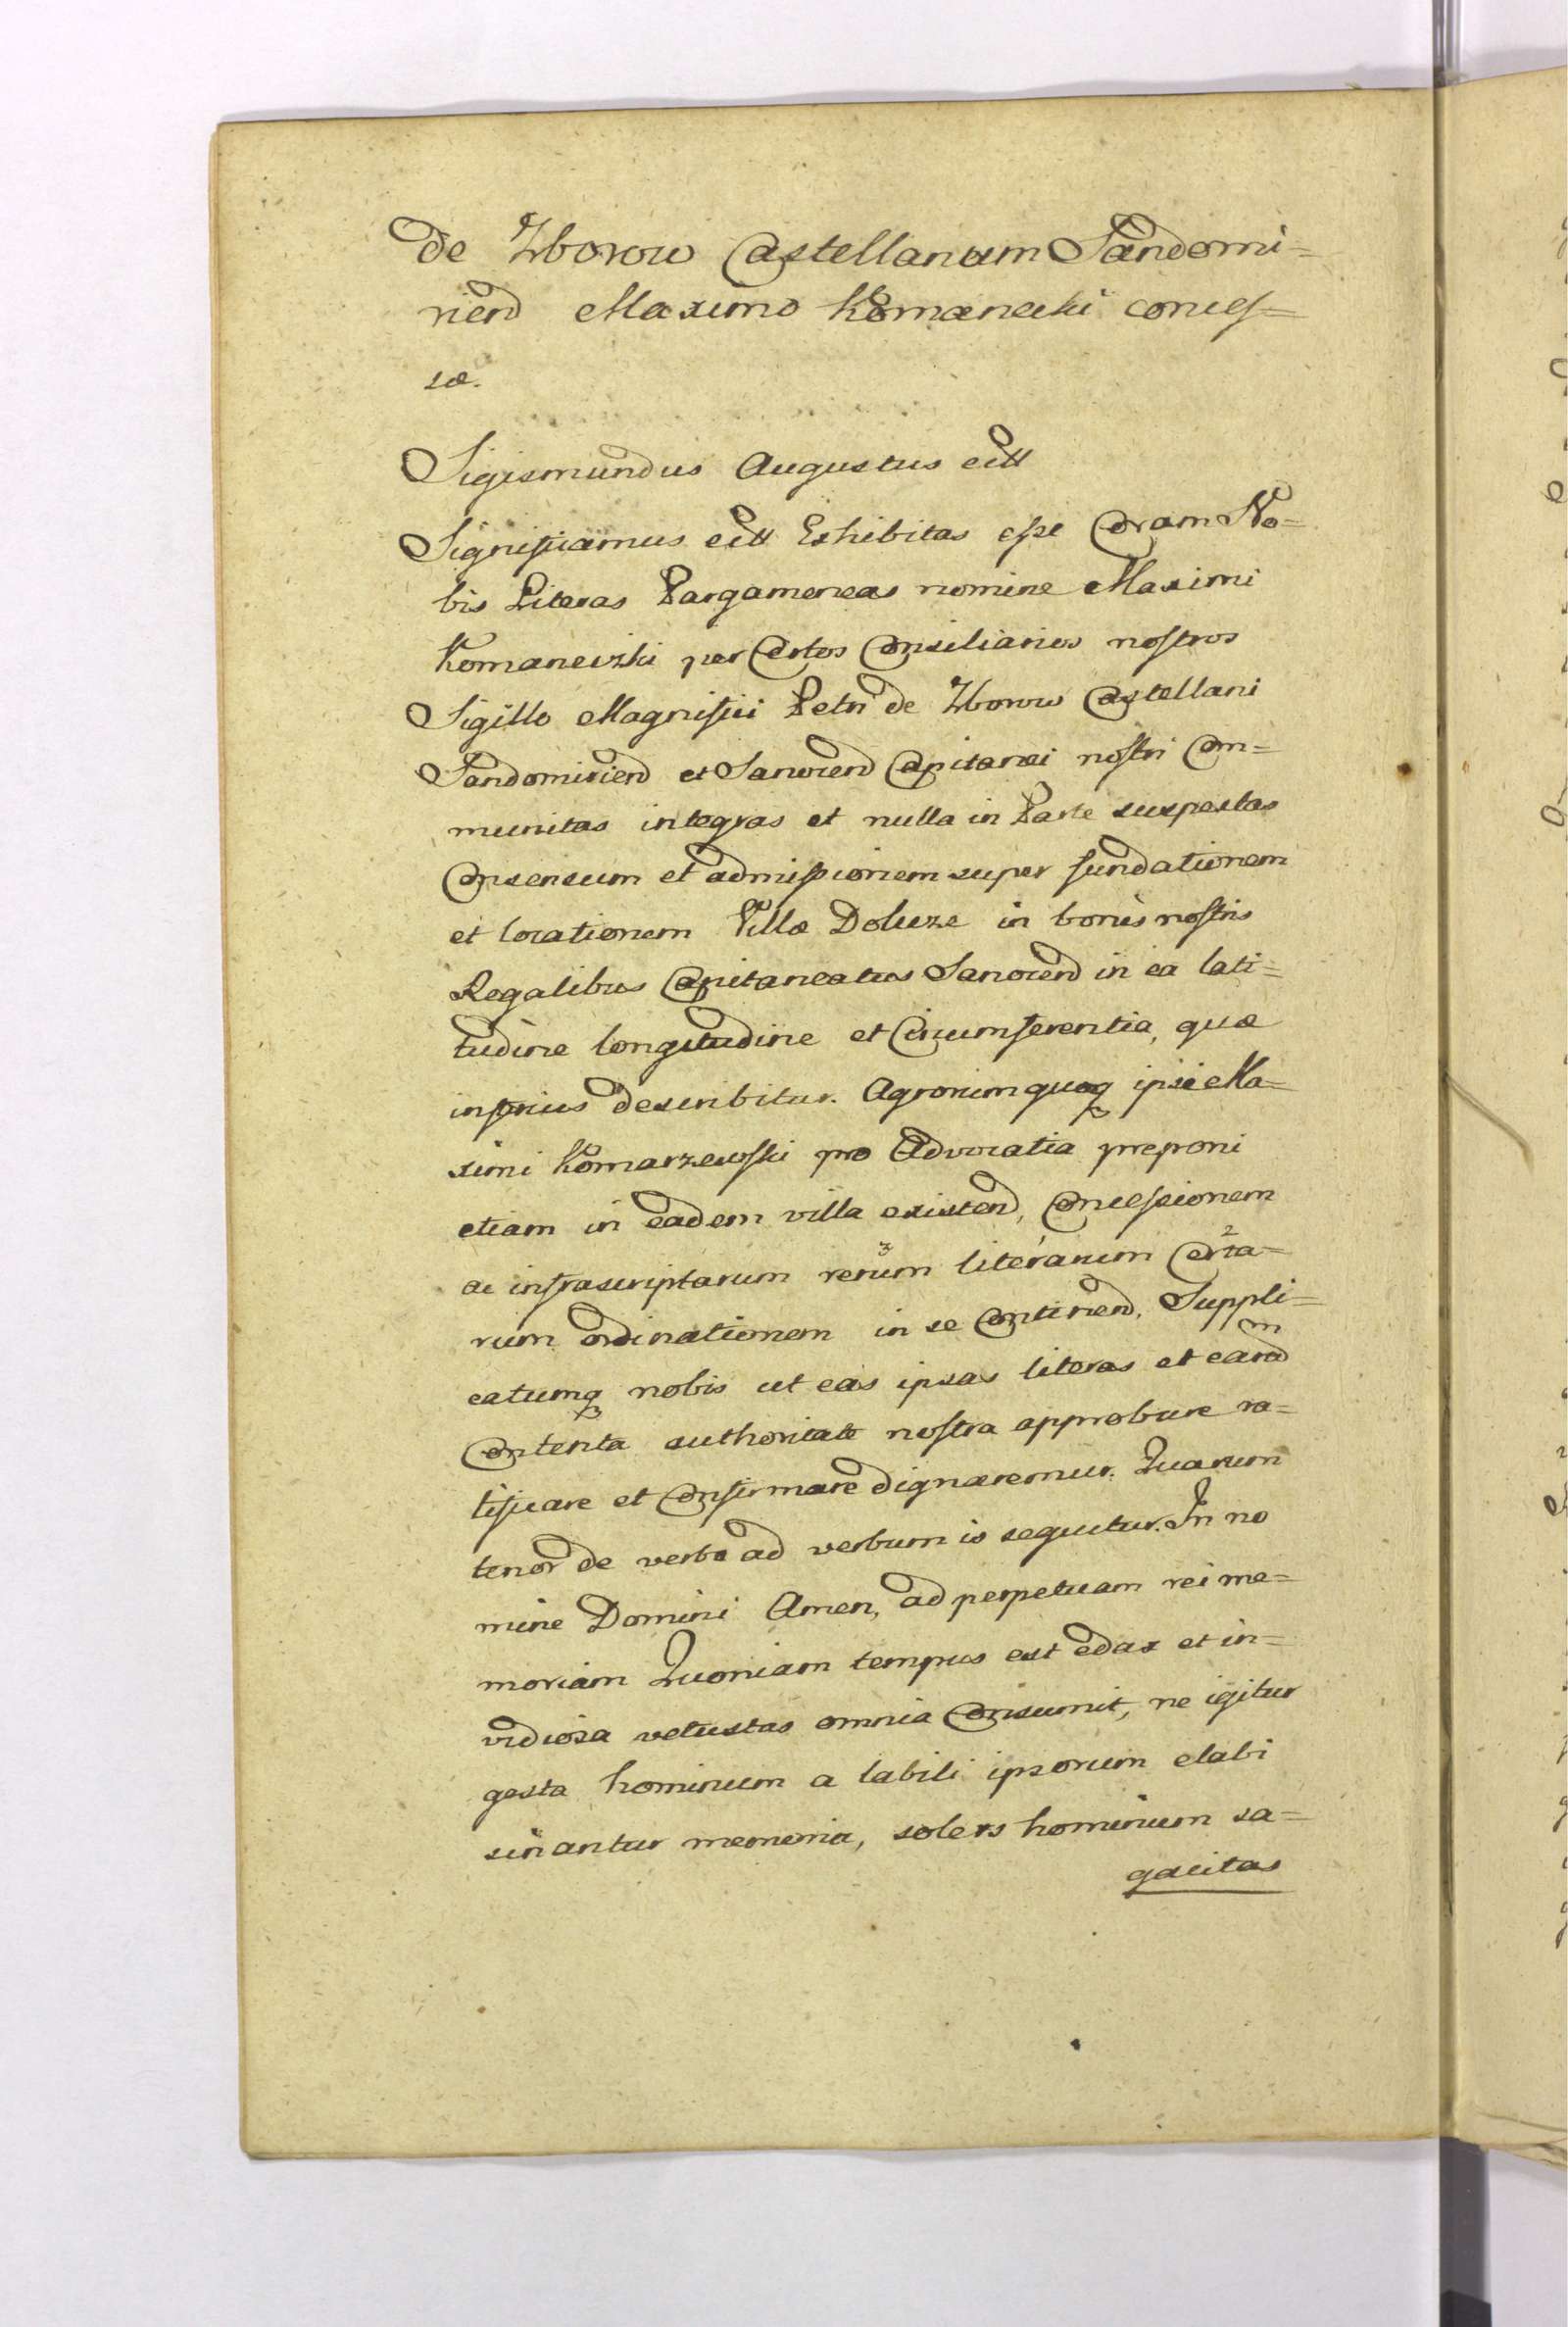 de Zborow Castellanum Sandomi=
rien Maximo Komanecki conces=
sæ.
Sigismundus Augustus ectt
Significamus ectt Exhibitas esse Coram No=
bis Literas Pargameneas nomine Maximi
Komaneczki per Certos Consiliarios nostros
Sigillo Magnifici Petri de Zborow Castellani
Sandomirien et Sanocen Capitanei nostri Com=
munitas integras et nulla in Parte suspectas
Consensum et admissionem super fundationem
et locationem Villæ Doluze in bonis nostris
Regalibus Capitaneatus Sanocen in ea lati=
tudine longitudine et Circumferentia, quæ
inferius describitur. Agrorumquoq ipsi Ma=
ximi Komarzewski pro Advocatia preponi
etiam in eadem villa existen, Concessionem
ac infrascriptarum rerum literarum Certa=
rum ordinationem in se Continen, Suppli=
catumq nobis ut eas ipsas literas et earum
Contenta authoritate nostra approbare ra=
tificare et Confirmare dignaremur. Quarum
tenor de verbo ad verbum is sequitur. In no
mine Domini Amen, ad perpetuam rei me=
moriam Quoniam tempus est edax et in=
vidiosa vetustas omnia Consumit, ne igitur
gesta hominum a labili ipsorum elabi
sinantur memoria, solers hominum sa=
gacitas